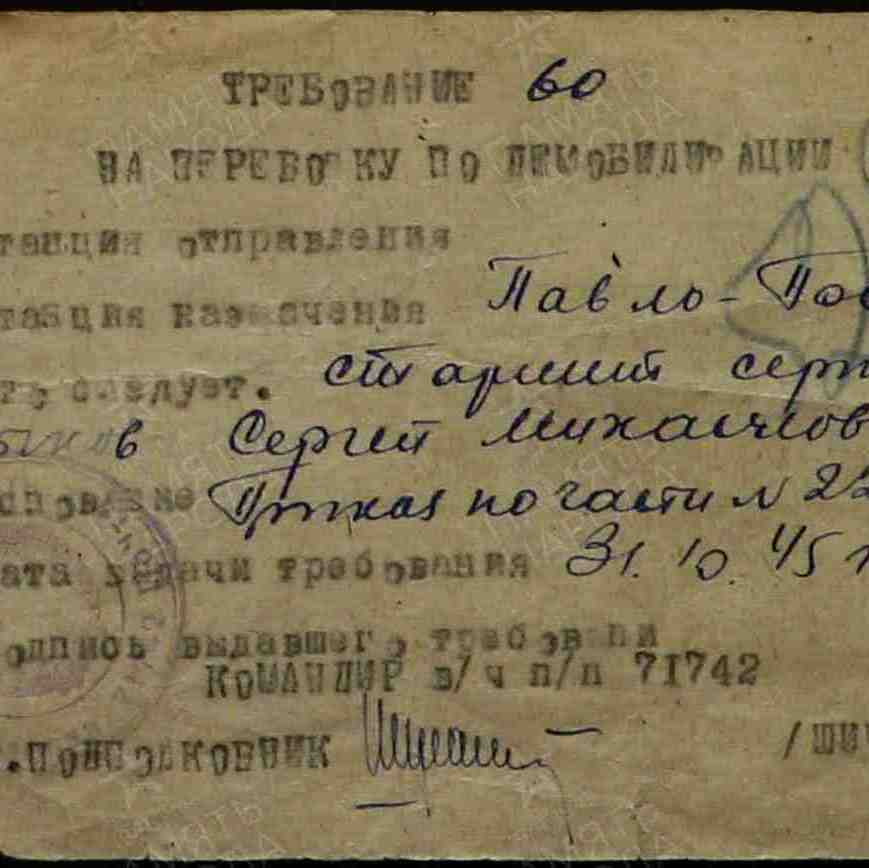 ТРЕБОВАНИЕ 60
НА ПЕРЕВОЗКУ ПО ДЕМОБИЛИЗАЦИИ
танция отправления
танция назначения Павло-
следует. старший серж
Сергей Михайлов
Приказ по части № 22
ата выдачи требования 31.10.45 г
одпись выдавшего требовани
КОМАНДИР в/ч п/п 71742
.ПОДПОЛКОВНИК /ШИ